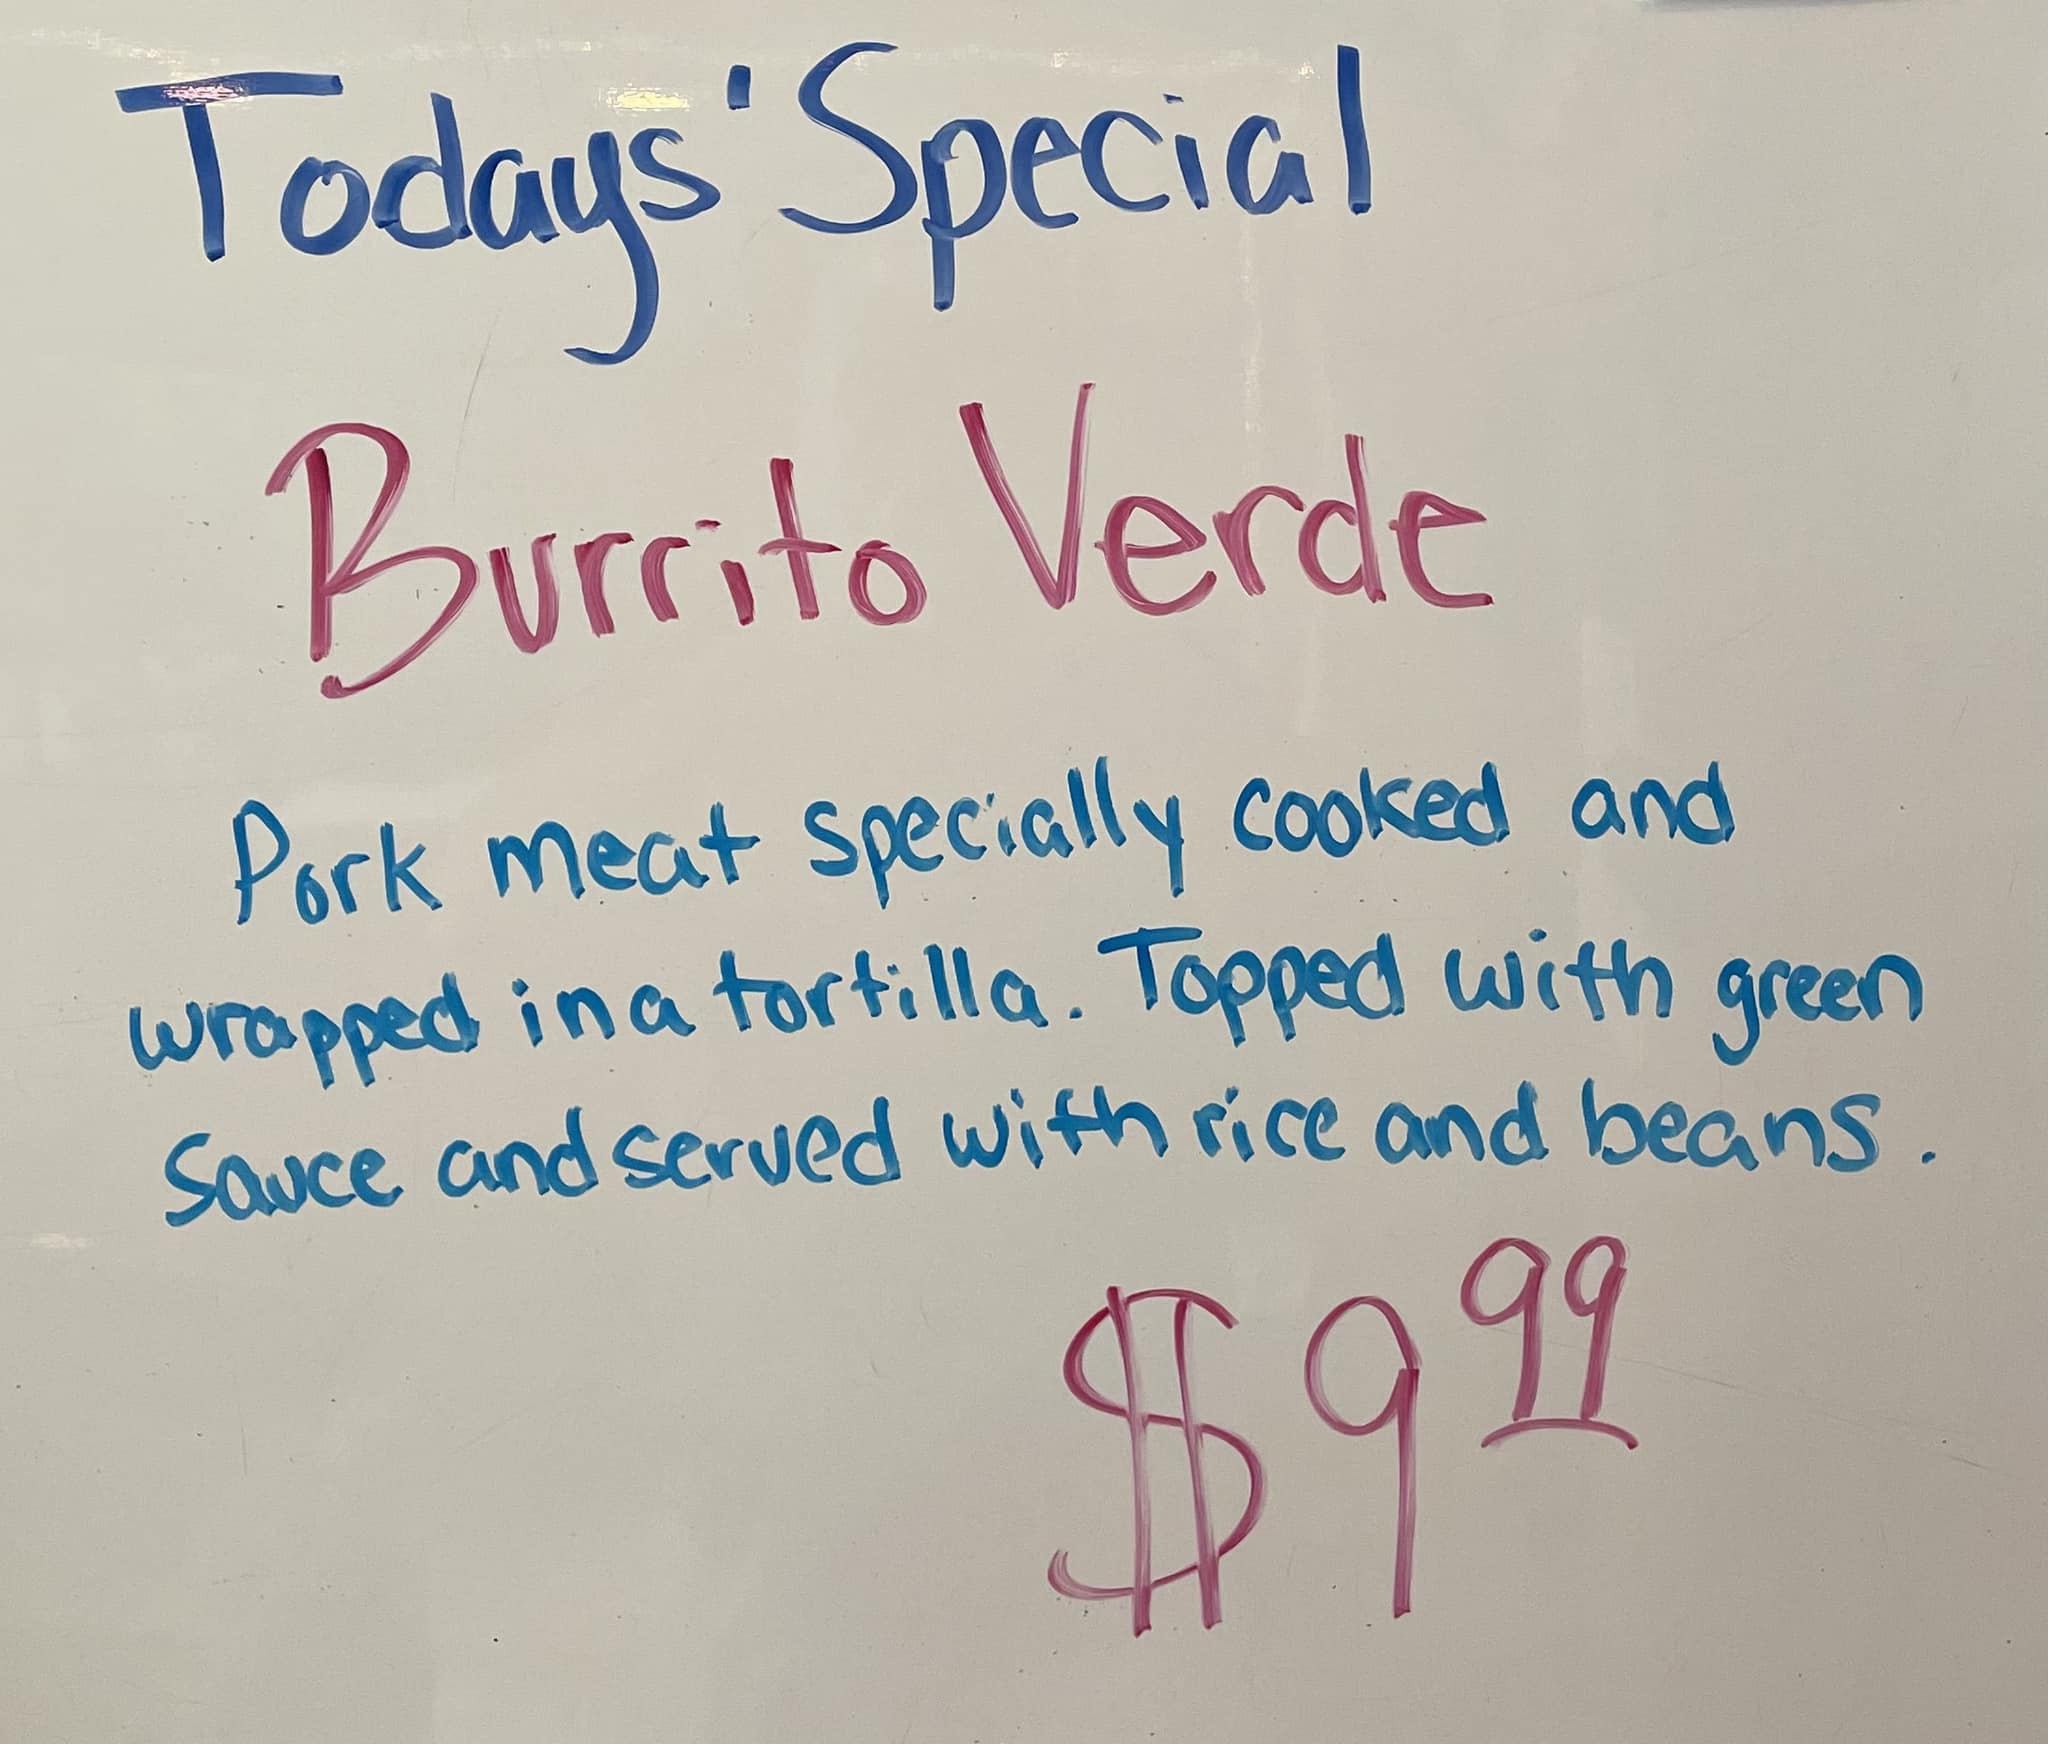 Todays' Special
Burrito Verde
Pork meat specially cooked and
wrapped in a tortilla. Topped with green
sauce and served with rice and beans.
$9.99